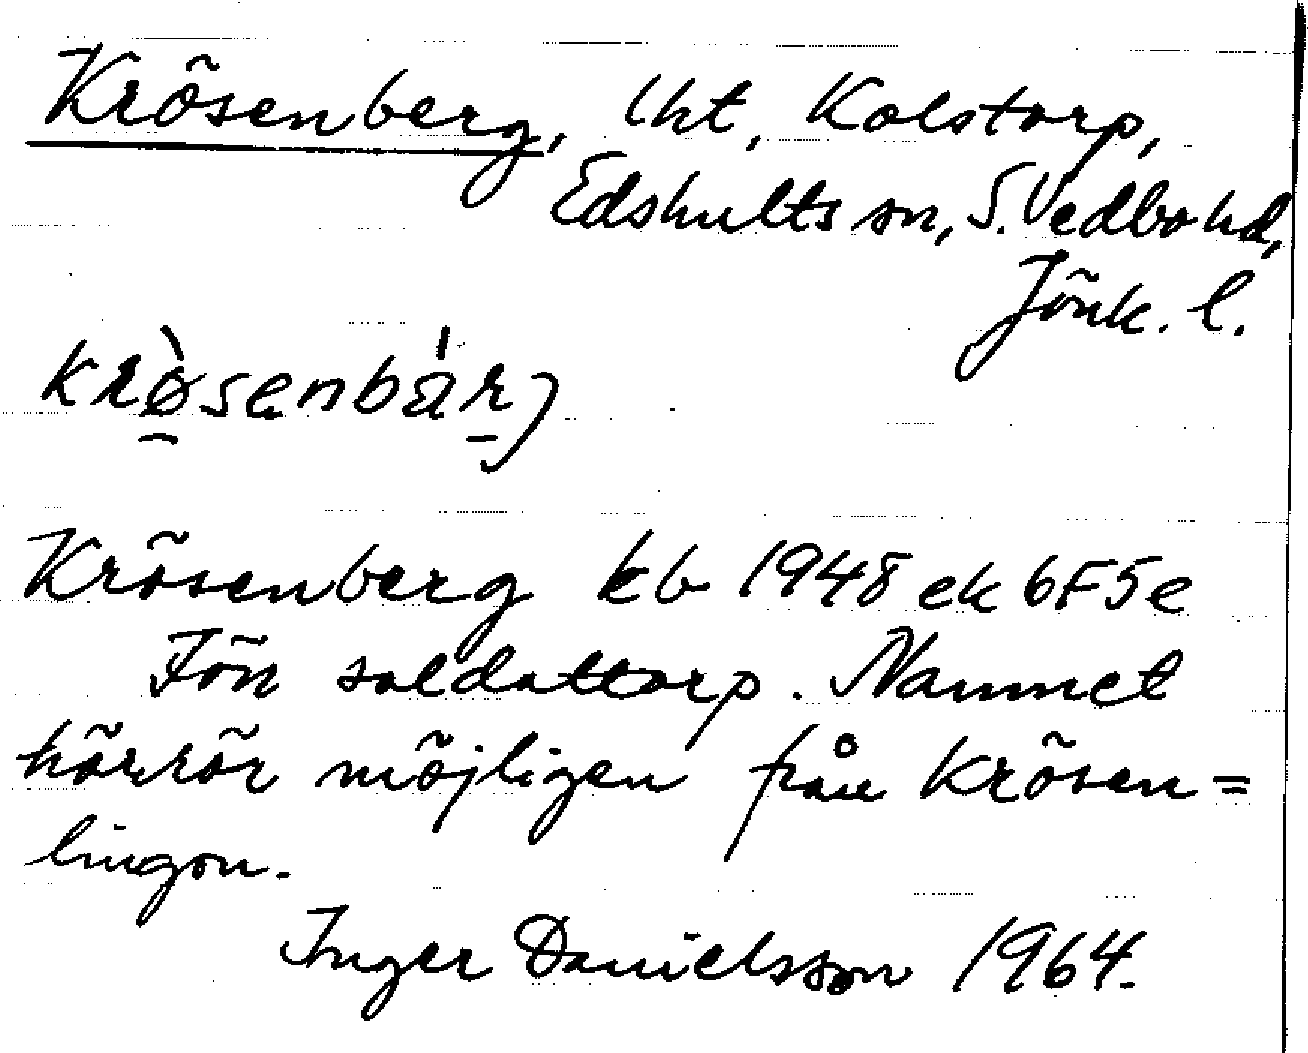 Krösenberg, lht, Kolstorp,
Edshults sn, S. Vedbo hd,
Jönk. l.
krø̀senbár̠j
Krösenberg kb 1948 ek 6F5e
Förr soldattorp. Namnet
härrör möjligen från Krösen=
lingon.
Inger Danielsson 1964.